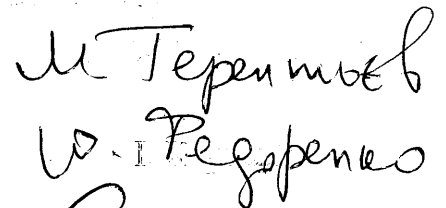 М Терентьев
Ю. Федоренко